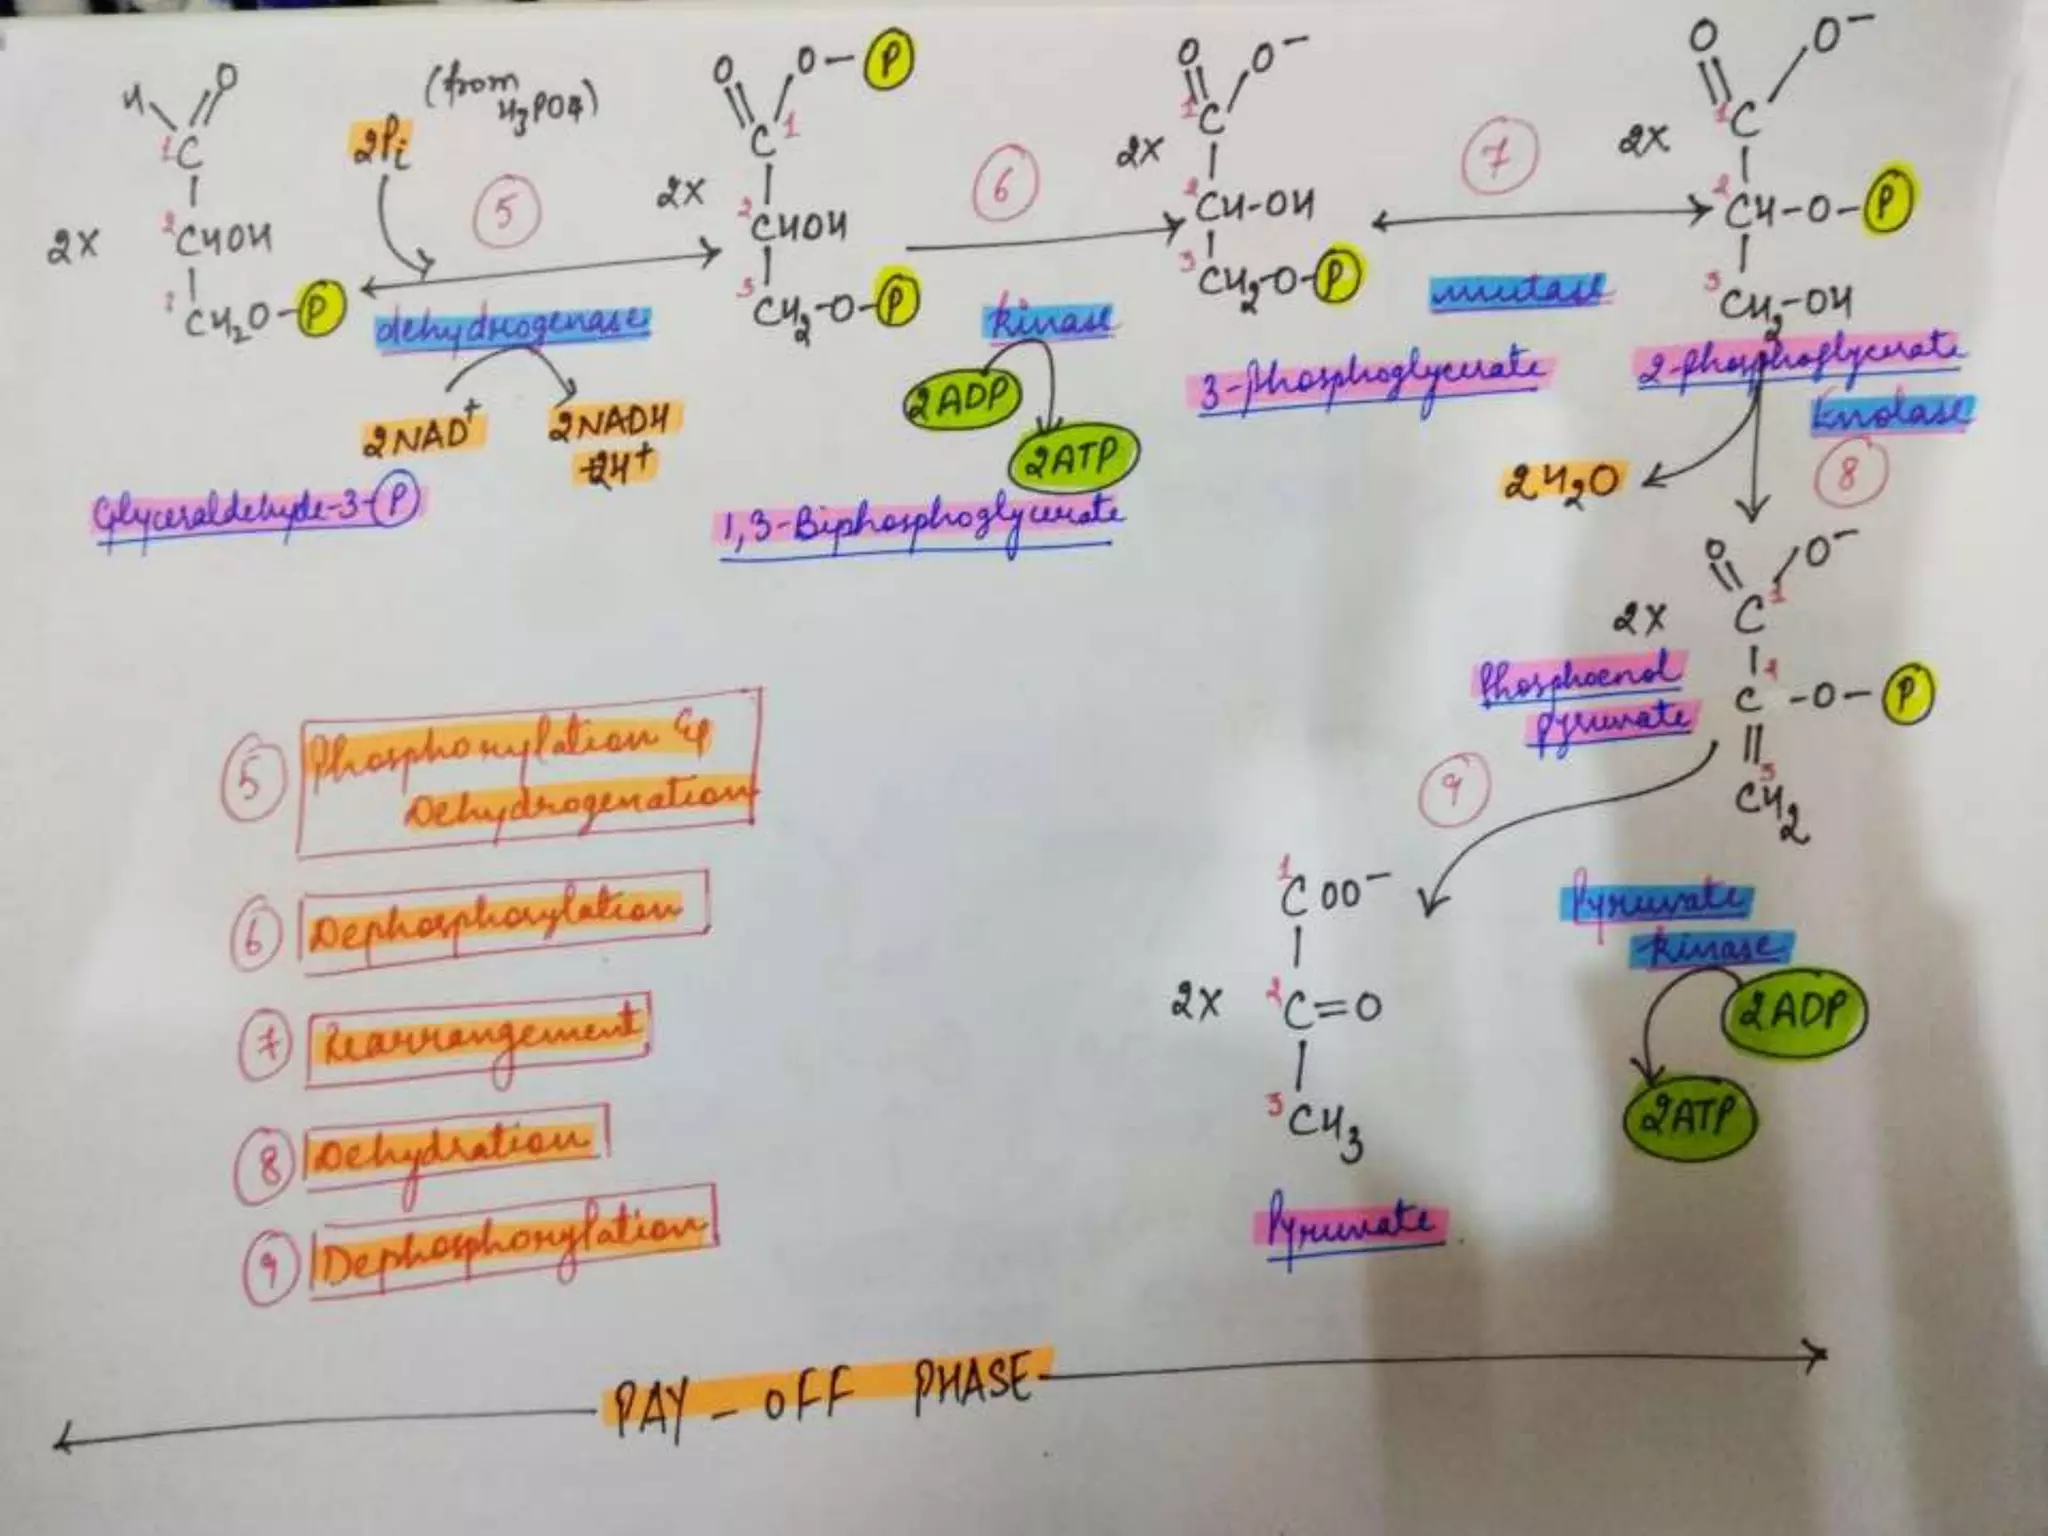 H O
1C
2X
2CHOH
CH2O-P
Glyceraldehyde-3-P
2Pi
(from
H3PO4)
5
dehydrogenase
2NAD+
2NADH
+2H+
O O-P
C1
2X
2CHOH
3CH2-O-P
1,3-Biphosphoglycerate
6
kinase
2ADP
2ATP
O O-
1C
2X
2CH-OH
3CH2-O-P
3-Phosphoglycerate
7
mutase
O O-
1C
2X
2CH-O-P
3CH2-OH
2-phosphoglycerate
Enolase
8
2H2O
O O-
C1
2X
C-O-P
3
CH2
Phosphoenol
pyruvate
9
Pyruvate
kinase
2ADP
2ATP
1COO-
2X
2C=O
3CH3
Pyruvate
5 Phosphorylation &
Dehydrogenation
6 Dephosphorylation
7 Rearrangement
8 Dehydration
9 Dephosphorylation
PAY-OFF PHASE